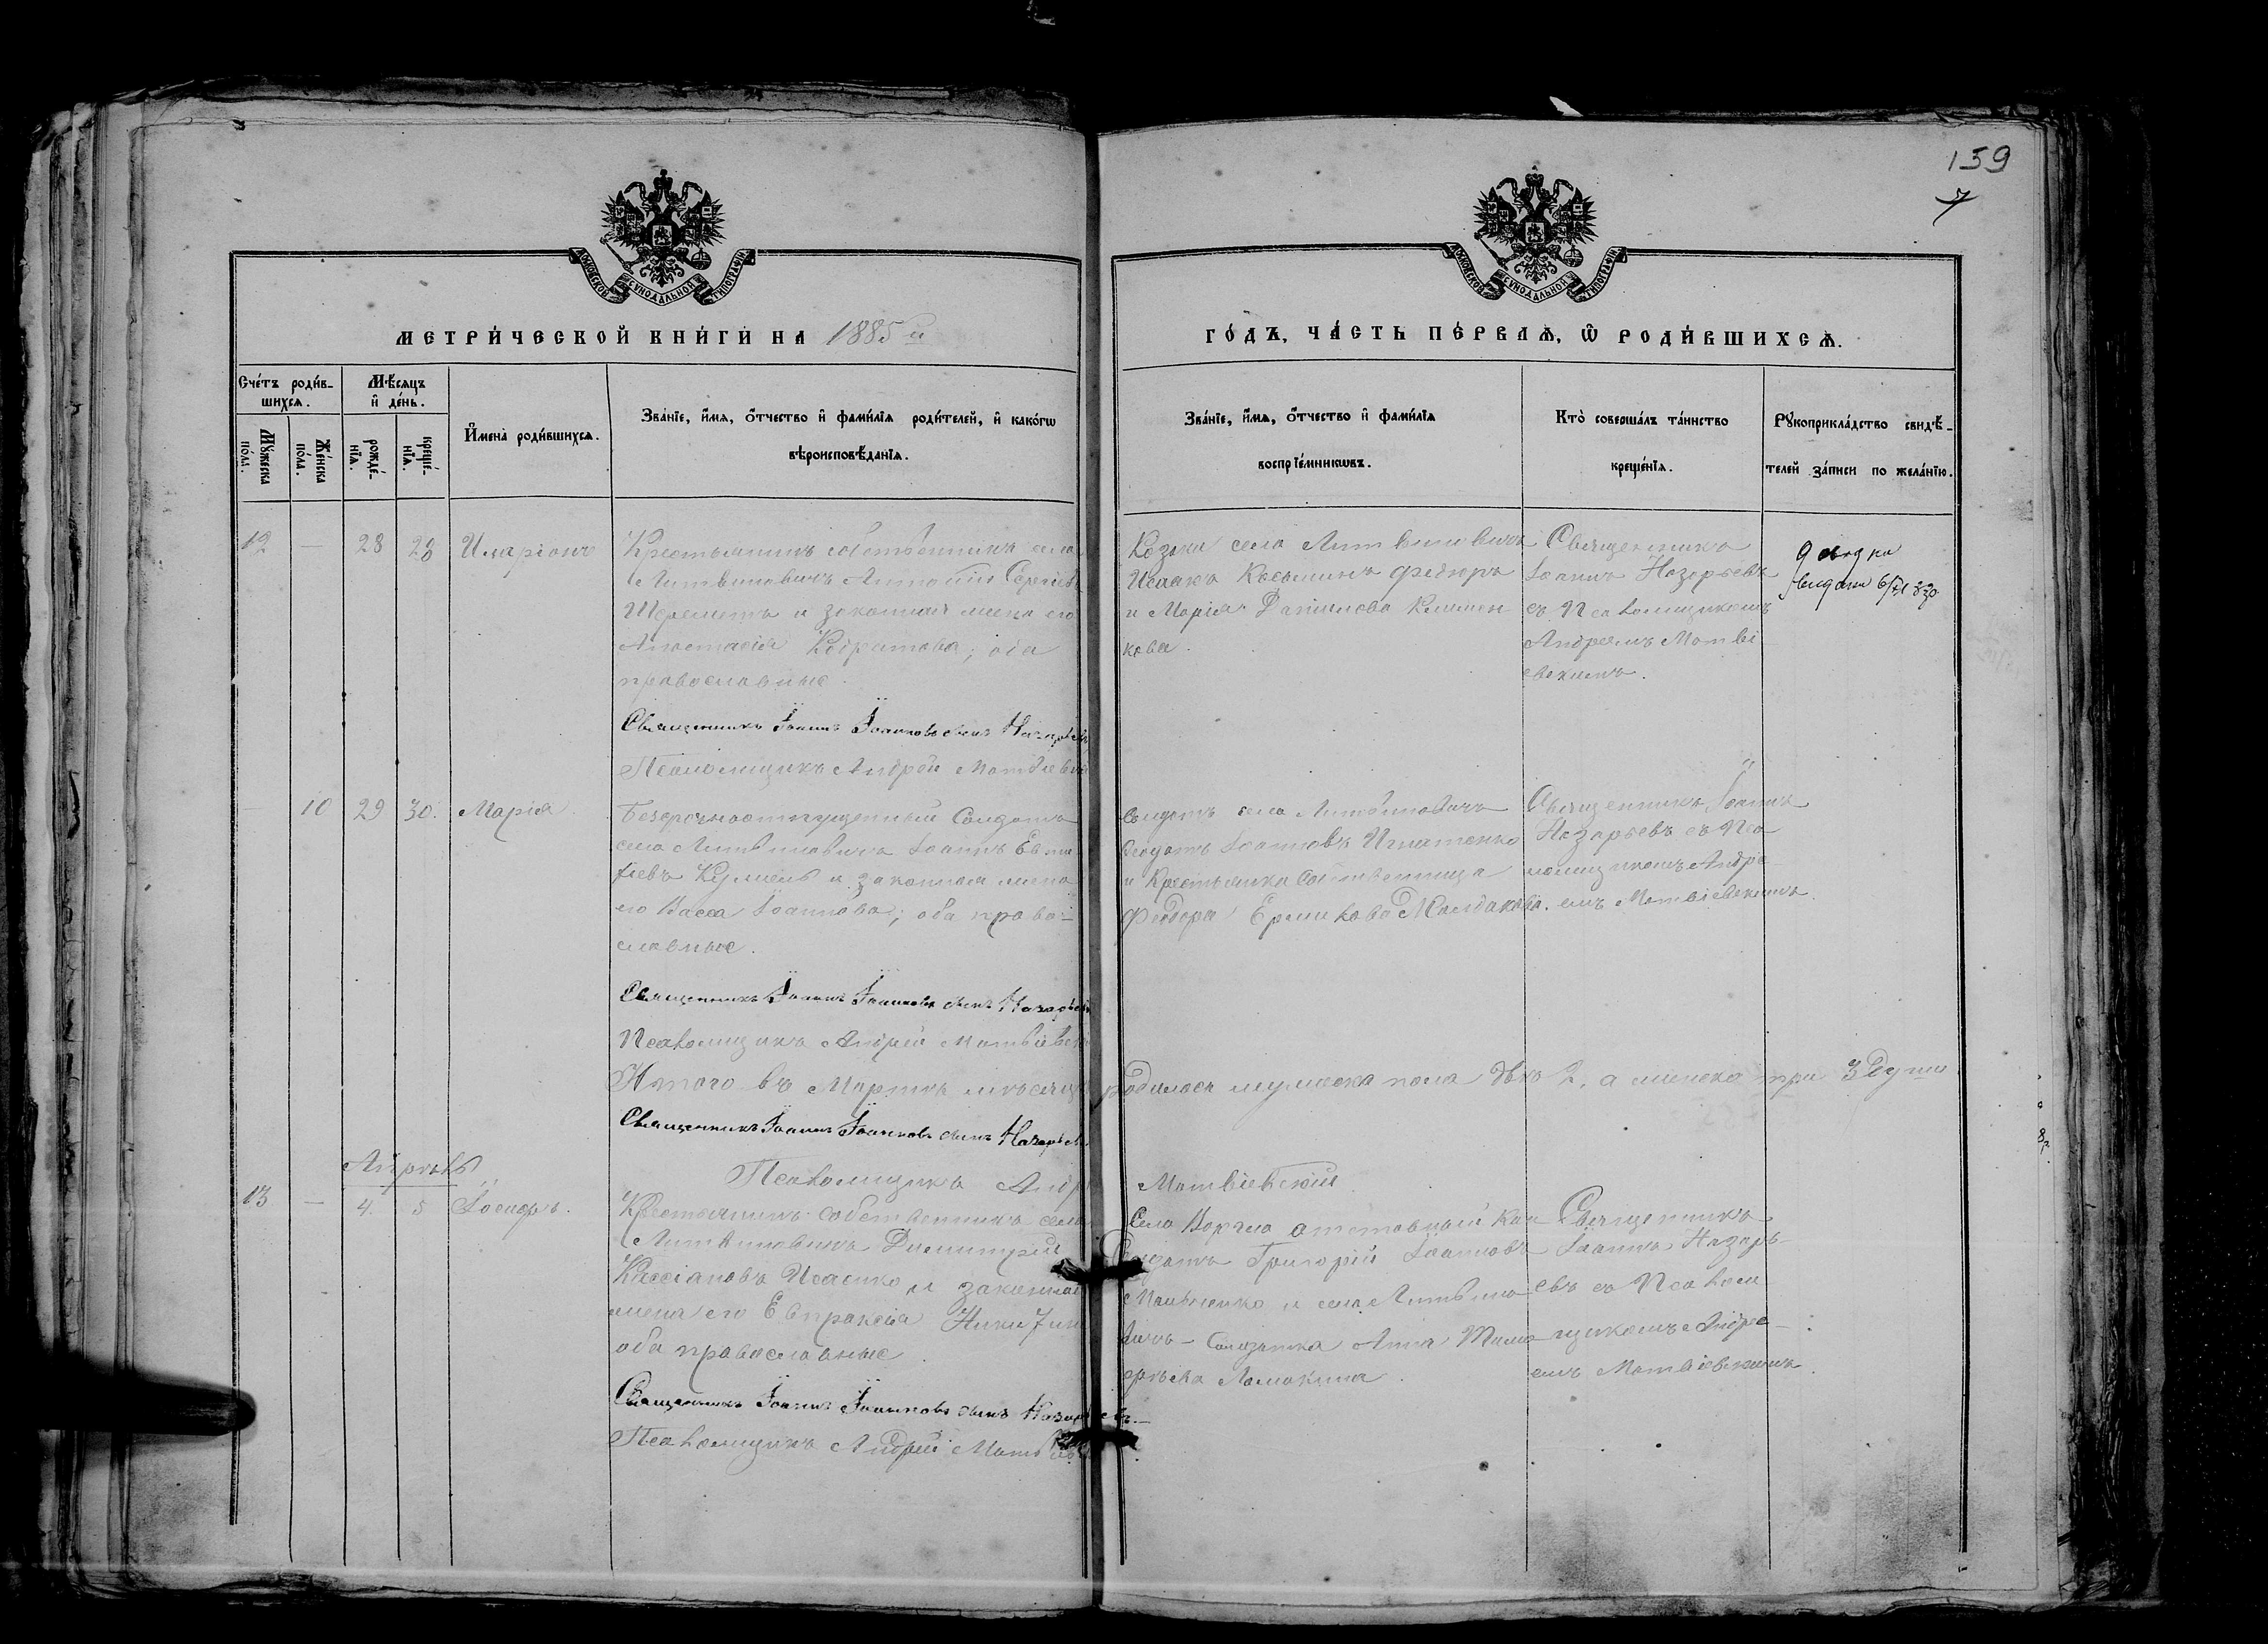 159
7
МОСКОВСКОЙ СѴНОДАЛЬНОЙ ТИПОГРАФІИ
МОСКОВСКОЙ СѴНОДАЛЬНОЙ ТИПОГРАФІИ
МЕТРИ́ЧЕСКОЙ КНИ́ГИ НА 1885 й
ГО́ДЪ, ЧА́СТЬ ПЕ́РВАѦ, Ѿ РОДИ́ВШИХСѦ.
Сче́тъ роди́в-
шихсѧ.
Мѣ́сѧцъ
и҆ де́нь.
Мꙋ́жеска
по́ла.
Же́нска
по́ла.
рожде́-
нїѧ.
креще́-
нїѧ.
И҆мена̀ роди́вшихсѧ.
Зва́нїе, и҆́мѧ, ѻ҆́тчество и҆ фами́лїѧ роди́телей, и҆ како́гѡ
вѣроисповѣ́данїѧ.
Зва́нїе, и҆́мѧ, ѻ҆́тчество и҆ фами́лїѧ
воспрїе́мникѡвъ.
Кто̀ соверша́лъ та́инство
креще́нїѧ.
Рꙋкоприкла́дство свидѣ́-
телей за́писи по жела́нїю.
12 — 28 28 Иларіонъ
Крестьянинъ собственникъ села
Литвиновичъ Антоній Сергіевъ
Шереметъ и законная жена его
Анастасія Кодратова; оба
православные.
Священникъ Іоаннъ Іоанновъ сынъ Назарьевъ
Псаломщикъ Андрей
Козаки села Литвиновичъ
Исаакъ Косьминъ
и Марія Даніилова Климен
кова.
Священникъ
Іоаннъ Назарьевъ
съ Псаломщикомъ
Андреемъ Матві
евскимъ.
10 29 30. Марія
Безсрочноотпущенный Солдатъ
села Литвиновичъ Іоаннъ Евти
хіевъ и законная жена
его Васса Іоаннова; оба право-
славные.
Священникъ Іоаннъ Іоанновъ сынъ Назарьевъ
Псаломщикъ Андрей Матвіевск
села Литвиновичъ
Іоанновъ Игнатенко
и Крестьянка Собственница
Феодора Ермикова
Священникъ Іоаннъ
Назарьевъ съ Пса
ломщикомъ Андре
емъ Матвіевскимъ.
Итого въ Мартѣ мѣсяцѣ родилось мужеска пола два 2, а женска три 3 души
Священникъ Іоаннъ Іоанновъ сынъ Назарьевъ
Псаломщикъ Андрей Матвіевскій
Апрѣль
13 — 4. 5 Іосифъ.
Крестьянинъ собственникъ села
Литвиновичъ Димитрій
Кассіановъ Исаенко и законная
жена его Евпраксія
оба православные.
Священникъ Іоаннъ Іоанновъ сынъ Назарьевъ.
Псаломщикъ Андрей Матвіев
Села Воргла отставный
Солдатъ Григорій Іоанновъ
и села Литвино
вичъ Солдатка Анна Тимо
Ломакина.
Священникъ
Іоаннъ Назарь-
евъ съ Псалом
щикомъ Андре-
емъ Матвіевскимъ.